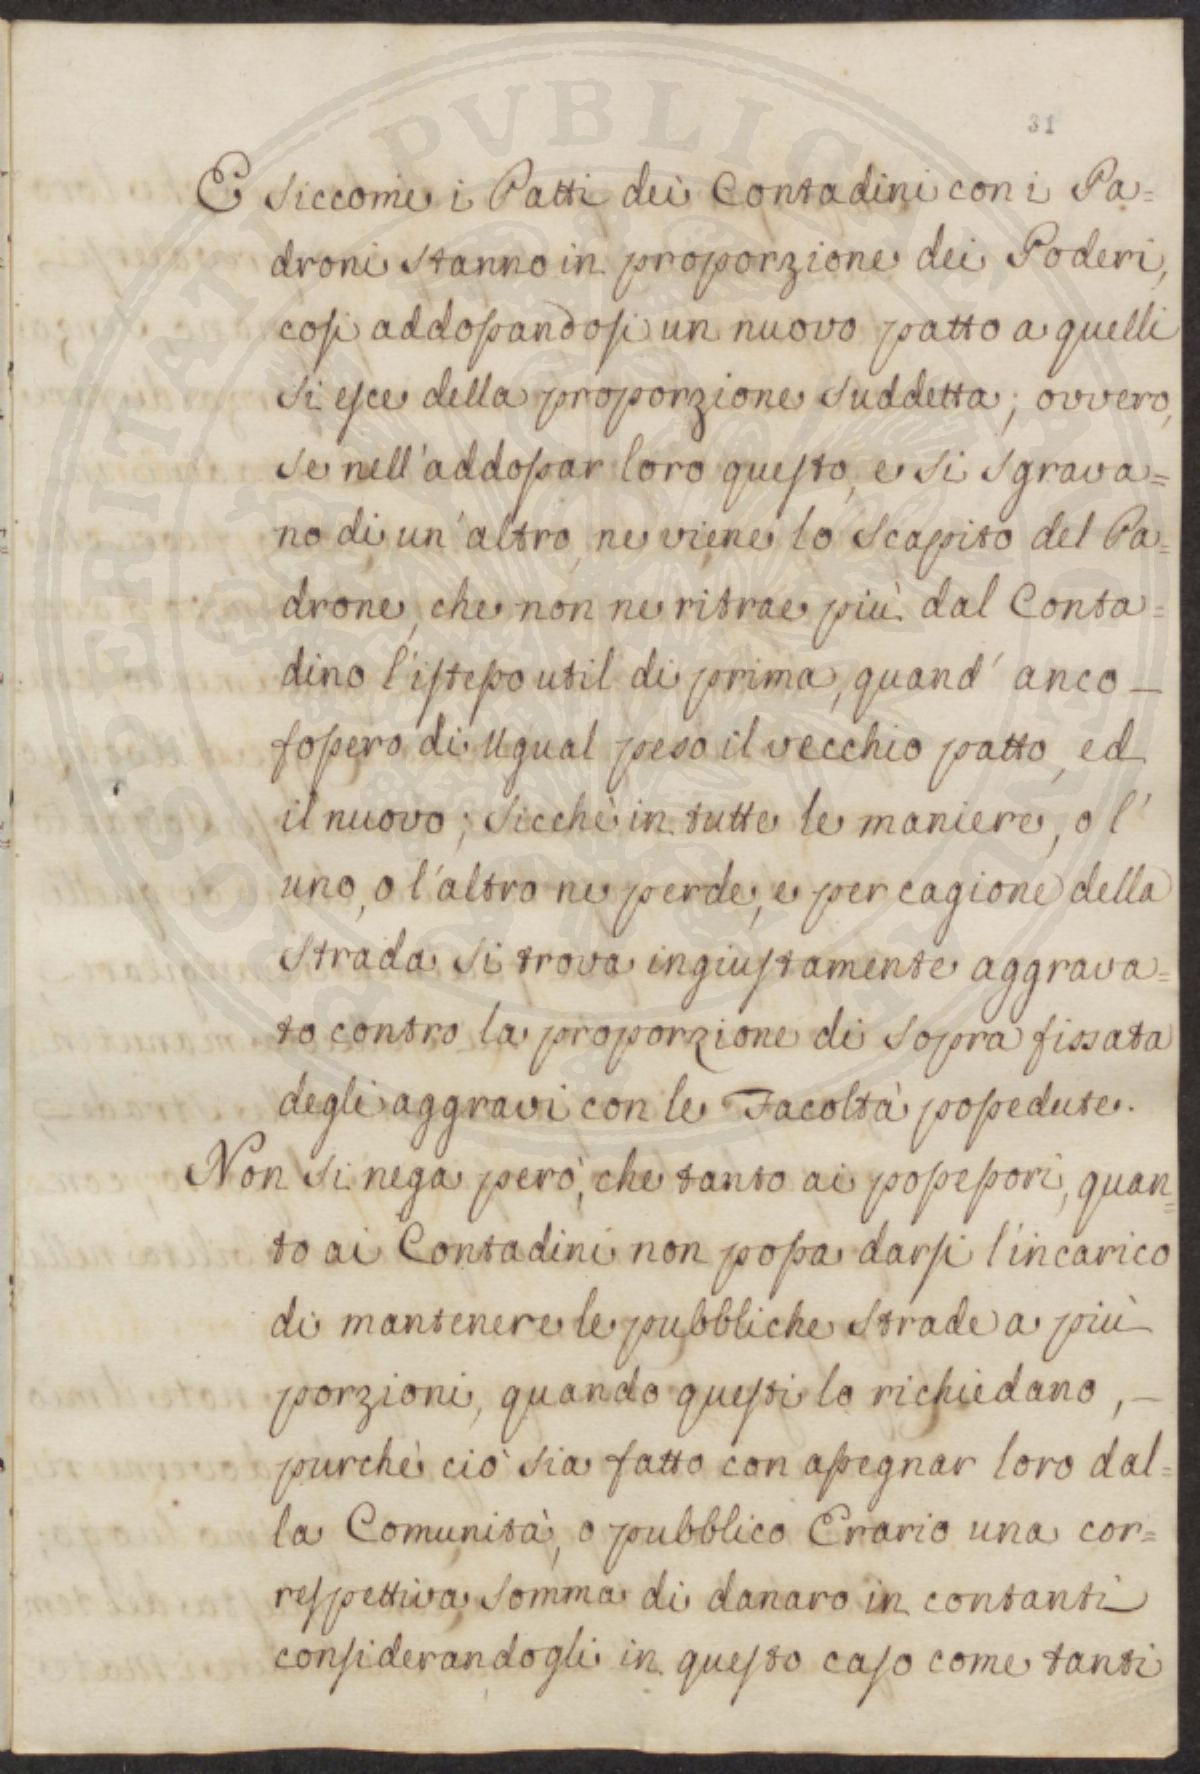 31
E siccome i Patti dei Contadini con i Pa=
droni stanno in proporzione dei Poderi,
così addossandosi un nuovo patto a quelli
si esce della proporzione suddetta; ovvero,
se nell'addossar loro questo, e si sgrava=
no di un'altro, ne viene lo scapito del Pa=
drone, che non ne ritrae più dal Conta=
dino l'istesso util di prima, quand' anco —
fossero di ugual peso il vecchio patto, ed
il nuovo; sicchè in tutte le maniere, o l'
uno, o l'altro ne perde, e per cagione della
strada si trova ingiustamente aggrava=
to contro la proporzione di sopra fissata
degli aggravi con le Facoltà possedute.
Non si nega però, che tanto ai possessori, quan=
to ai Contadini non possa darsi l'incarico
di mantenere le pubbliche strade a più
porzioni, quando questi lo richiedano, —
purchè ciò sia fatto con assegnar loro dal=
la Comunità, o pubblico Erario una cor=
respettiva somma di danaro in contanti
considerandogli in questo caso come tanti
PROSPERITATI PUBLICAE